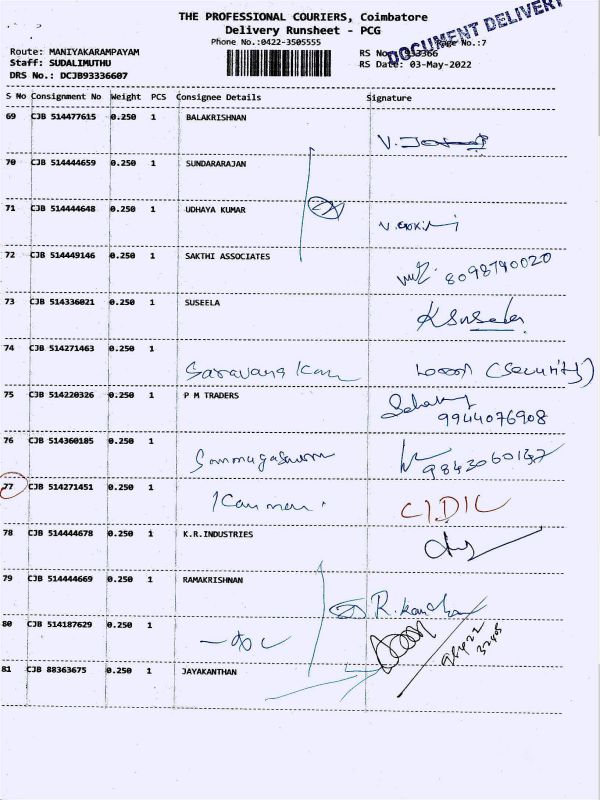 THE PROFESSIONAL COURIERS, Coimbatore
Delivery Runsheet - PCG
Phone No.:0422-3505555
DOCUMENT DELIVERY
Page No.:7
Route: MANIYAKARAMPAYAM
Staff: SUDALIMUTHU
RS Date: 03-May-2022
DRS No.: DCJB93336607
S No Consignment No Weight PCS Consignee Details Signature
69 CJB 514477615 0.250 1 BALAKRISHNAN
70 CJB 514444659 0.250 1 SUNDARARAJAN
71 CJB 514444648 0.250 1 UDHAYA KUMAR
72 CJB 514449146 0.250 1 SAKTHI ASSOCIATES
8098790020
73 CJB 514336021 0.250 1 SUSEELA
K Suseela
74 CJB 514271463 0.250 1
Saravana Kum (Security)
75 CJB 514220326 0.250 1 P M TRADERS
9944076908
76 CJB 514360185 0.250 1
77 CJB 514271451 0.250 1
78 CJB 514444678 0.250 1 K.R.INDUSTRIES
79 CJB 514444669 0.250 1 RAMAKRISHNAN
80 CJB 514187629 0.250 1
81 CJB 88363675 0.250 1 JAYAKANTHAN